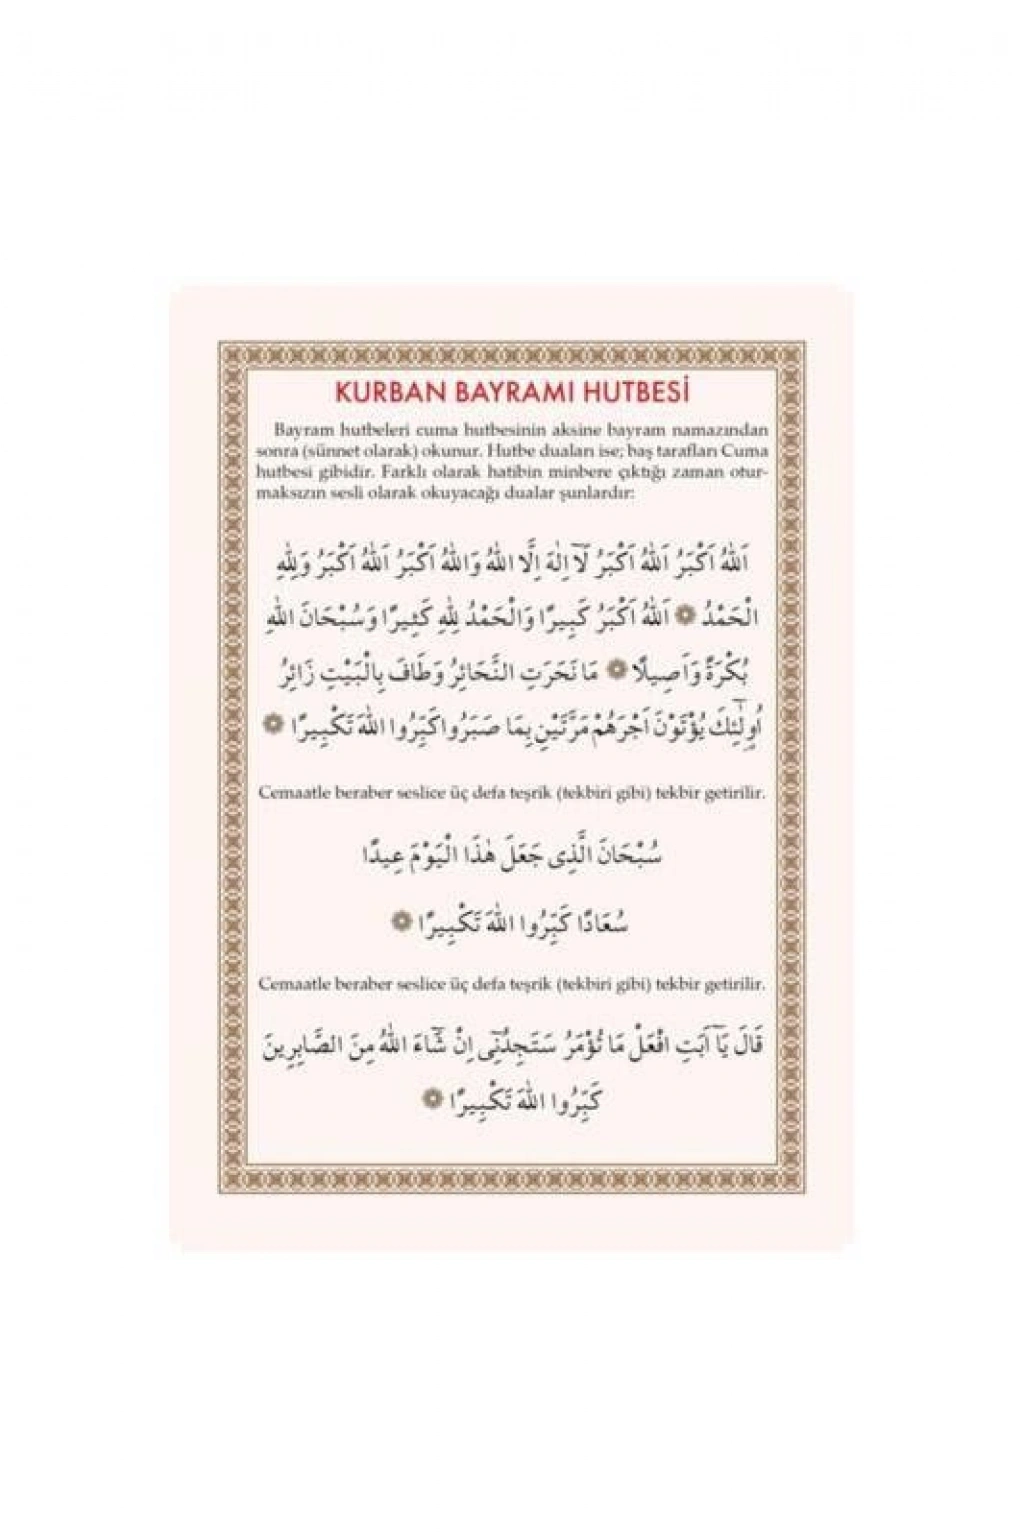 KURBAN BAYRAMI HUTBESİ
Bayram hutbeleri cuma hutbesinin aksine bayram namazından
sonra (sünnet olarak) okunur. Hutbe duaları ise; baş tarafları Cuma
hutbesi gibidir. Farklı olarak hatibin minbere çıktığı zaman otur-
maksızın sesli olarak okuyacağı dualar şunlardır:
اَللّٰهُ اَكْبَرُ اَللّٰهُ اَكْبَرُ لَٓا اِلٰهَ اِلَّا اللّٰهُ وَاللّٰهُ اَكْبَرُ اَللّٰهُ اَكْبَرُ وَلِلّٰهِ
الْحَمْدُ ۞ اَللّٰهُ اَكْبَرُ كَبِيرًا وَالْحَمْدُ لِلّٰهِ كَثِيرًا وَسُبْحَانَ اللّٰهِ
بُكْرَةً وَاَصِيلًا ۞ مَا نَحَرَتِ النَّحَائِرُ وَطَافَ بِالْبَيْتِ زَائِرُ
اُو۬لٰٓئِكَ يُؤْتَوْنَ اَجْرَهُمْ مَرَّتَيْنِ بِمَا صَبَرُوا كَبِّرُوا اللّٰهَ تَكْبِيرًا ۞
Cemaatle beraber seslice üç defa teşrik (tekbiri gibi) tekbir getirilir.
سُبْحَانَ الَّذِى جَعَلَ هٰذَا الْيَوْمَ عِيدًا
سُعَادًا كَبِّرُوا اللّٰهَ تَكْبِيرًا ۞
Cemaatle beraber seslice üç defa teşrik (tekbiri gibi) tekbir getirilir.
قَالَ يَٓا اَبَتِ افْعَلْ مَا تُؤْمَرُ سَتَجِدُنِٓى اِنْ شَٓاءَ اللّٰهُ مِنَ الصَّابِرِينَ
كَبِّرُوا اللّٰهَ تَكْبِيرًا ۞